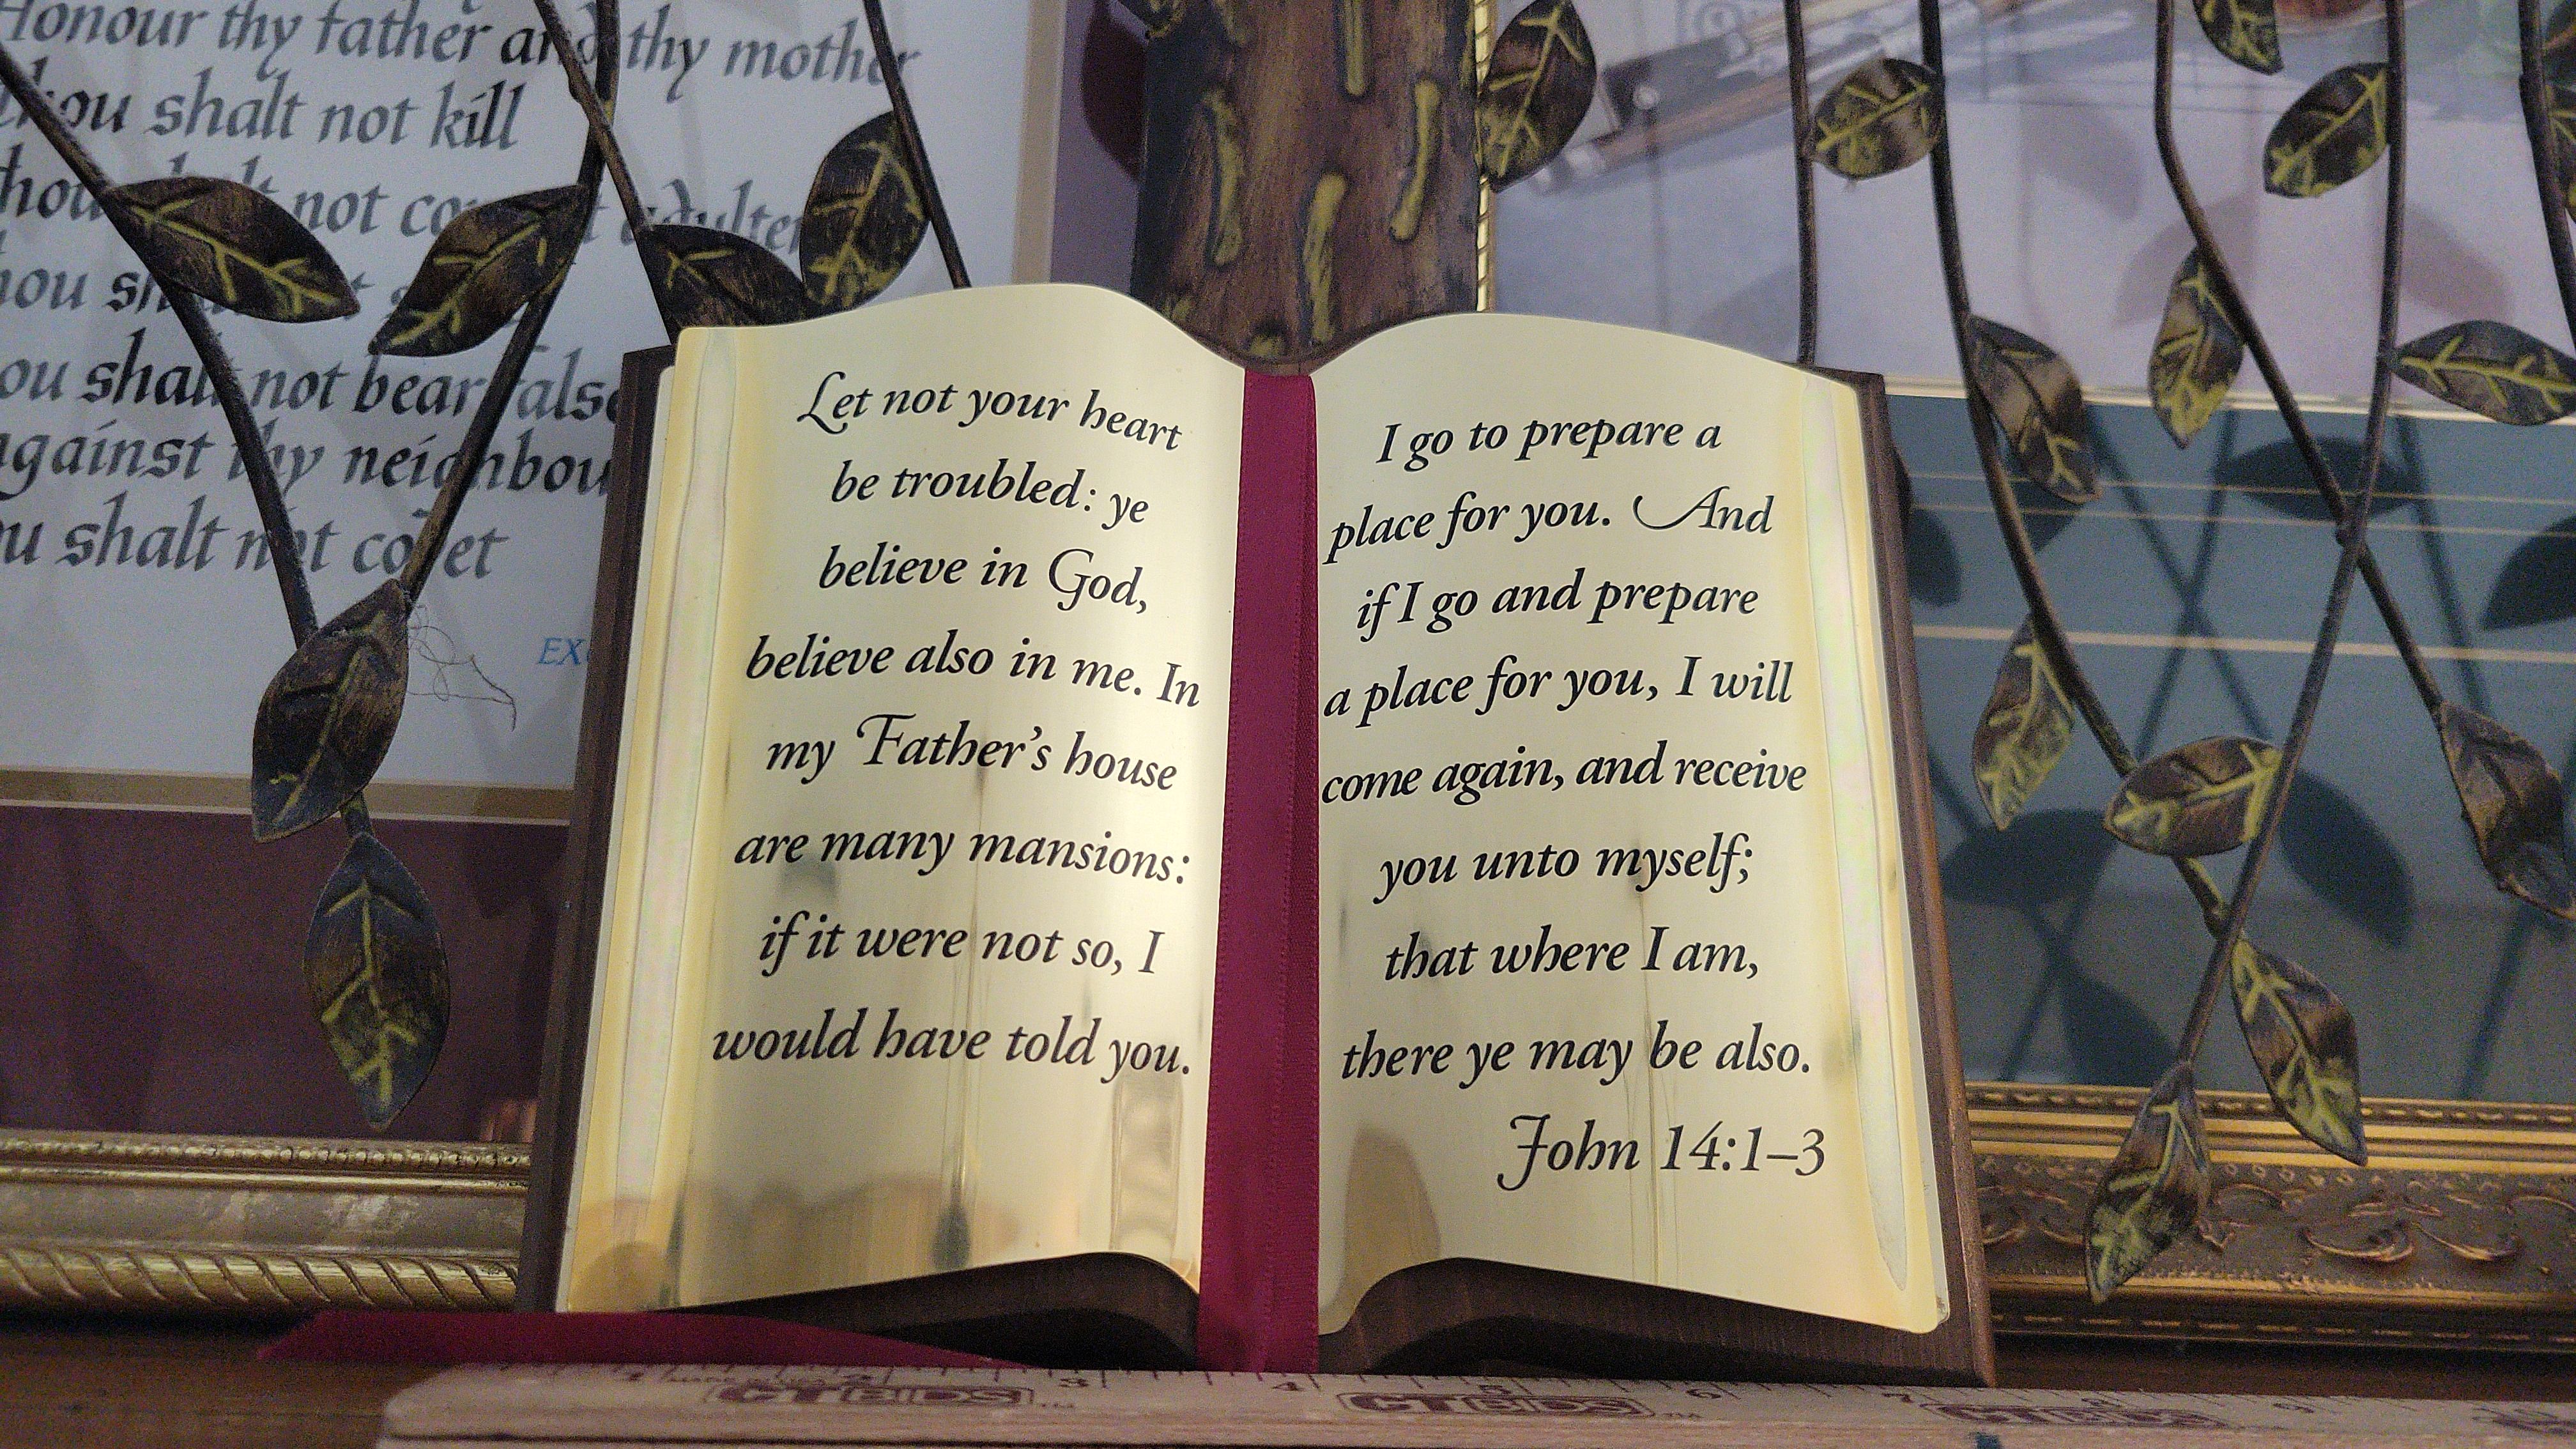 Honour thy father and thy mother
thou shalt not kill
thou shalt not commit adultery
thou shalt not
thou shalt not bear false
against thy neighbour
thou shalt not covet
Let not your heart
be troubled: ye
believe in God,
believe also in me. In
my Father's house
are many mansions:
if it were not so, I
would have told you.
I go to prepare a
place for you. And
if I go and prepare
a place for you, I will
come again, and receive
you unto myself;
that where I am,
there ye may be also.
John 14:1–3
1 2 3 4 5 6 7 8 9
CTBIDS™ CTBIDS™ CTBIDS